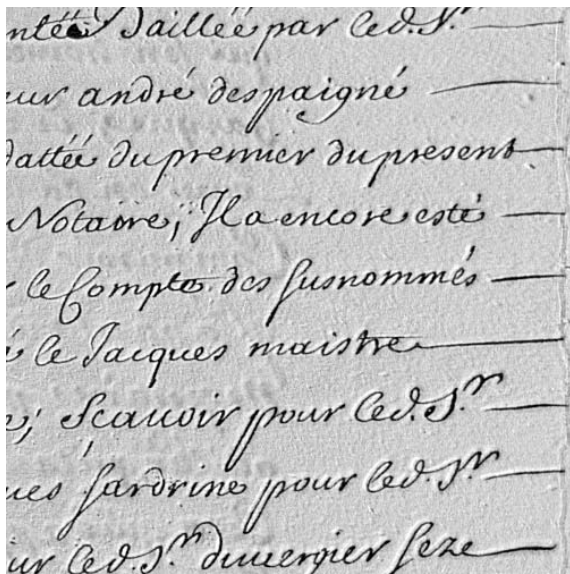 ntée Daillée par led. Sr.
eur andré despaigné
dattée du premier du present
Notaire; Il a encore esté
le Compte des susnommés
le Jacques maistre
scauoir pour led. Sr.
ques sardrine pour led. Sr.
ur led. Sr. duuergier seze